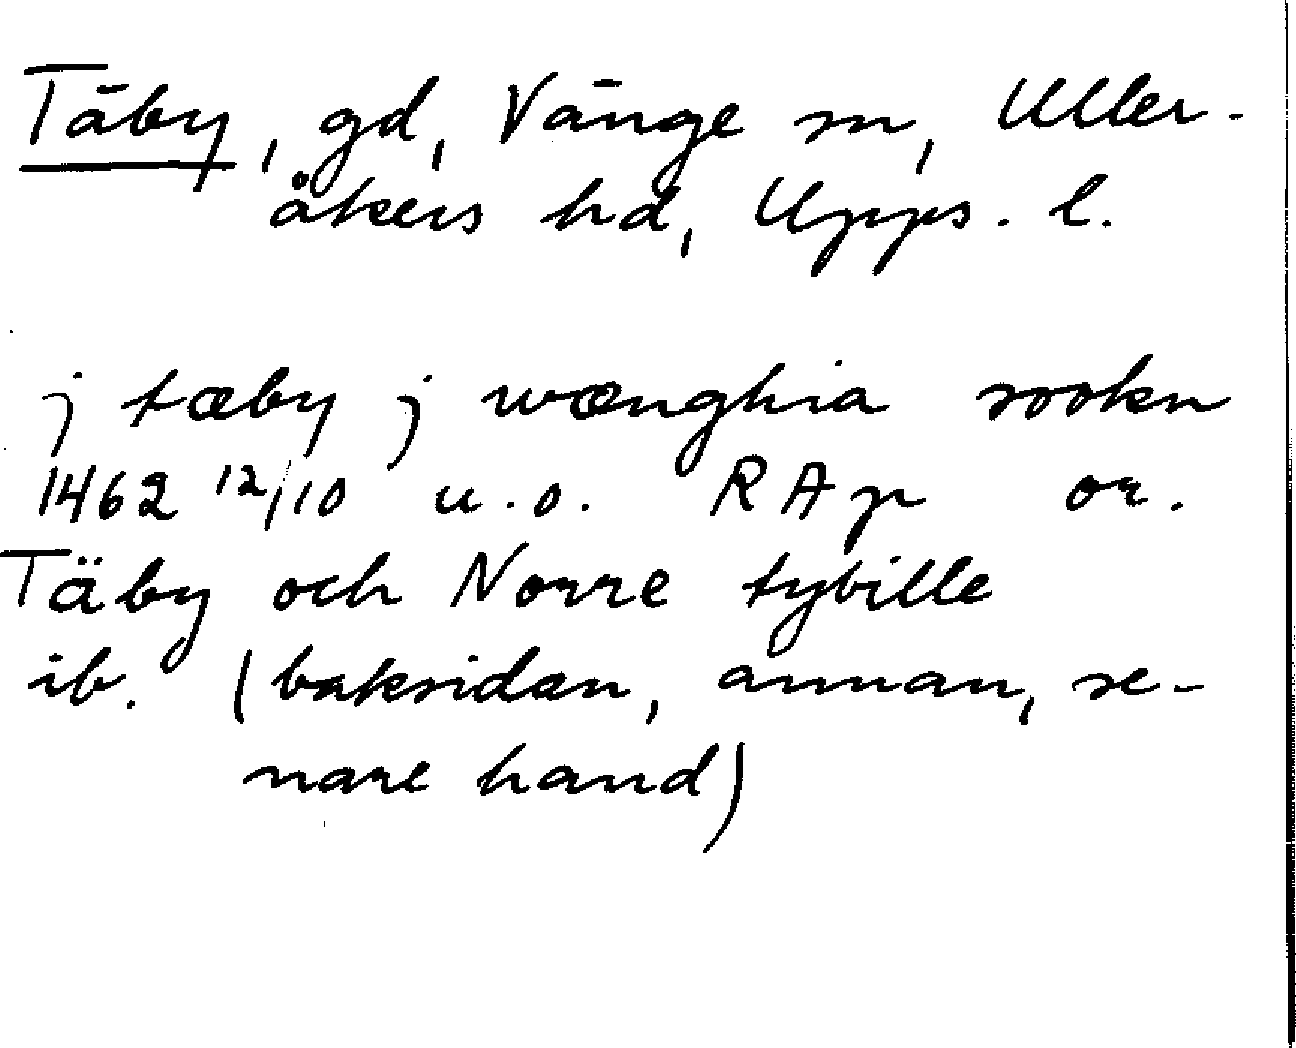 Täby, gd, Vänge sn, Uller-
åkers hd, Upps. l.
j tæby j wænghia sokn
1462 12/10 u.o. RAp or.
Täby och Norre tybille
ib. (baksidan, annan, se-
nare hand)